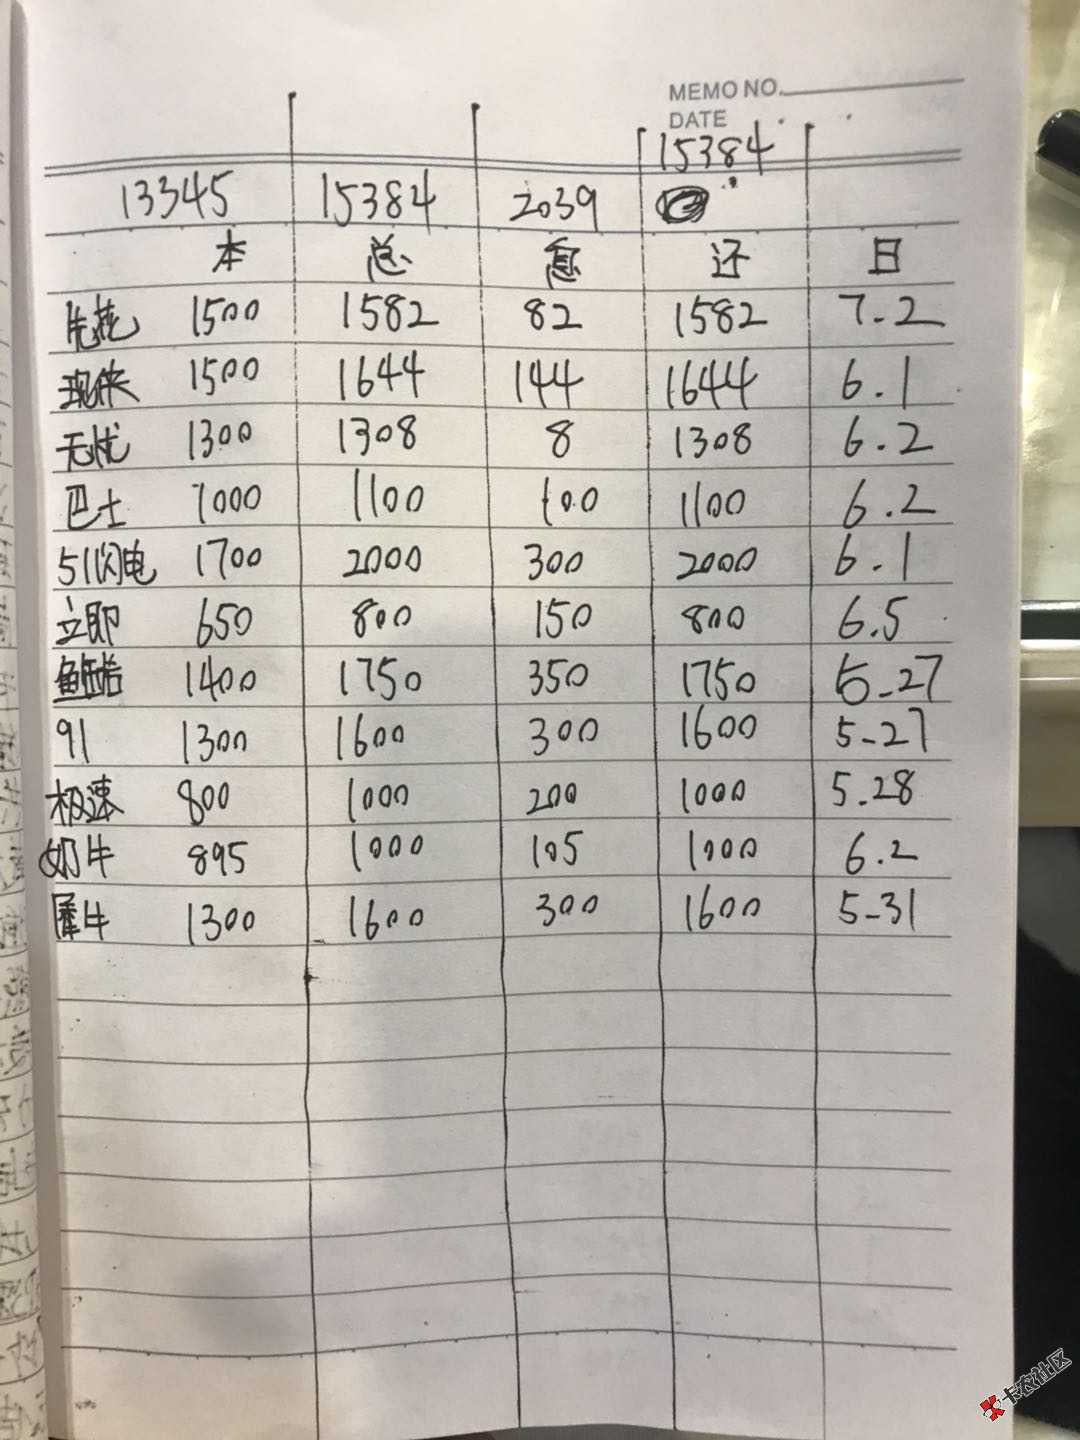 MEMO NO.
DATE
15384
13345 15384 2039
本 总 息 还 日
先花 1500 1582 82 1582 7-2
现侠 1500 1644 144 1644 6.1
无忧 1300 1308 8 1308 6.2
巴士 1000 1100 100 1100 6.2
51闪电 1700 2000 300 2000 6.1
立即 650 800 150 800 6.5
1400 1750 350 1750 5-27
91 1300 1600 300 1600 5-27
极速 800 1000 200 1000 5.28
奶牛 895 1000 105 1000 6.2
犀牛 1300 1600 300 1600 5-31
卡农社区